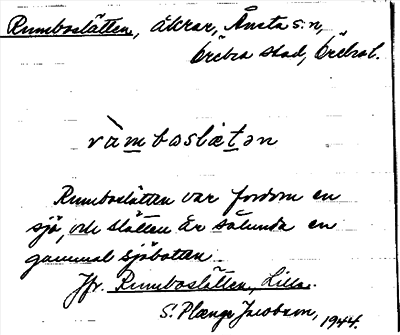 Rumboslätten, åkrar, Ånsta s:n,
Örebro stad, Örebro l.
ràmboslætən
Rumboslätten var fordom en
sjö, och slätten är sålunda en
gammal sjöbotten.
Jfr. Rumboslätten, Lilla.
S. Plænge Jacobson, 1944.